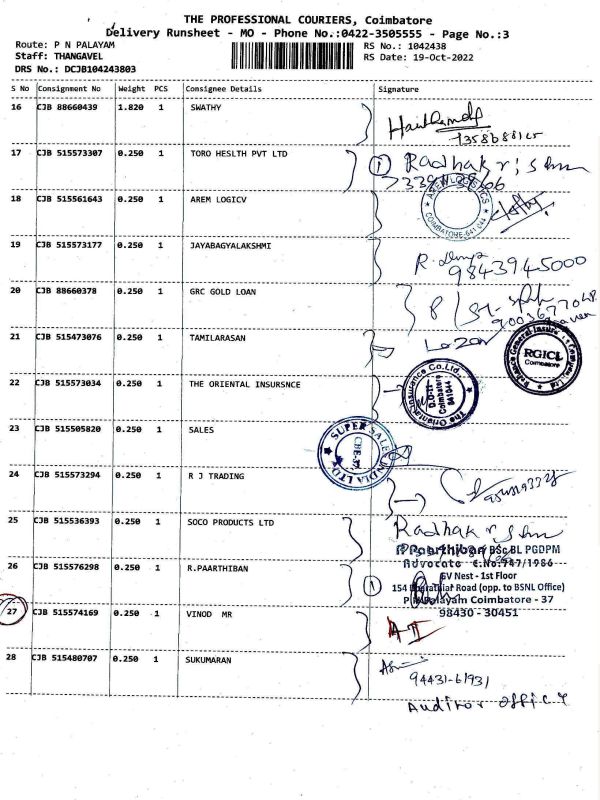 THE PROFESSIONAL COURIERS, Coimbatore
Delivery Runsheet - MO - Phone No.:0422-3505555 - Page No.:3
Route: P N PALAYAM
RS No.: 1042438
Staff: THANGAVEL
RS Date: 19-Oct-2022
DRS No.: DCJB104243803
S No Consignment No Weight PCS Consignee Details Signature
16 CJB 88660439 1.820 1 SWATHY
17 CJB 515573307 0.250 1 TORO HESLTH PVT LTD
18 CJB 515561643 0.250 1 AREM LOGICV
AREM LOGISTICS
COIMBATORE-641 044
19 CJB 515573177 0.250 1 JAYABAGYALAKSHMI
9843945000
20 CJB 88660378 0.250 1 GRC GOLD LOAN
21 CJB 515473076 0.250 1 TAMILARASAN
RGICL
Coimbatore
22 CJB 515573034 0.250 1 THE ORIENTAL INSURSNCE
The Oriental Insurance Co.Ltd.
Coimbatore
641044
23 CJB 515505820 0.250 1 SALES
SUPER SALES INDIA LTD
24 CJB 515573294 0.250 1 R J TRADING
25 CJB 515536393 0.250 1 SOCO PRODUCTS LTD
26 CJB 515576298 0.250 1 R.PAARTHIBAN
R Paarthiban BSc BL PGDPM
Advocate E.No:747/1986
GV Nest - 1st Floor
154 Bharathiar Road (opp. to BSNL Office)
P N Palayam Coimbatore - 37
98430 - 30451
27 CJB 515574169 0.250 1 VINOD MR
28 CJB 515480707 0.250 1 SUKUMARAN
94431-61931
Auditor office